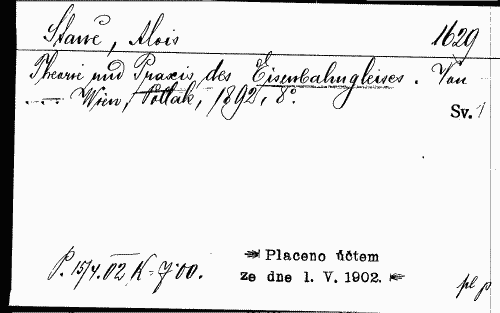 Stané, Alois 1629
Theorie und Praxis des Eisenbahngleises. Von
.... Wien, Pollak, 1892, 8°.
Sv. 1
P. 15/4.02 K=7.00.
Placeno účtem
ze dne 1. V. 1902.